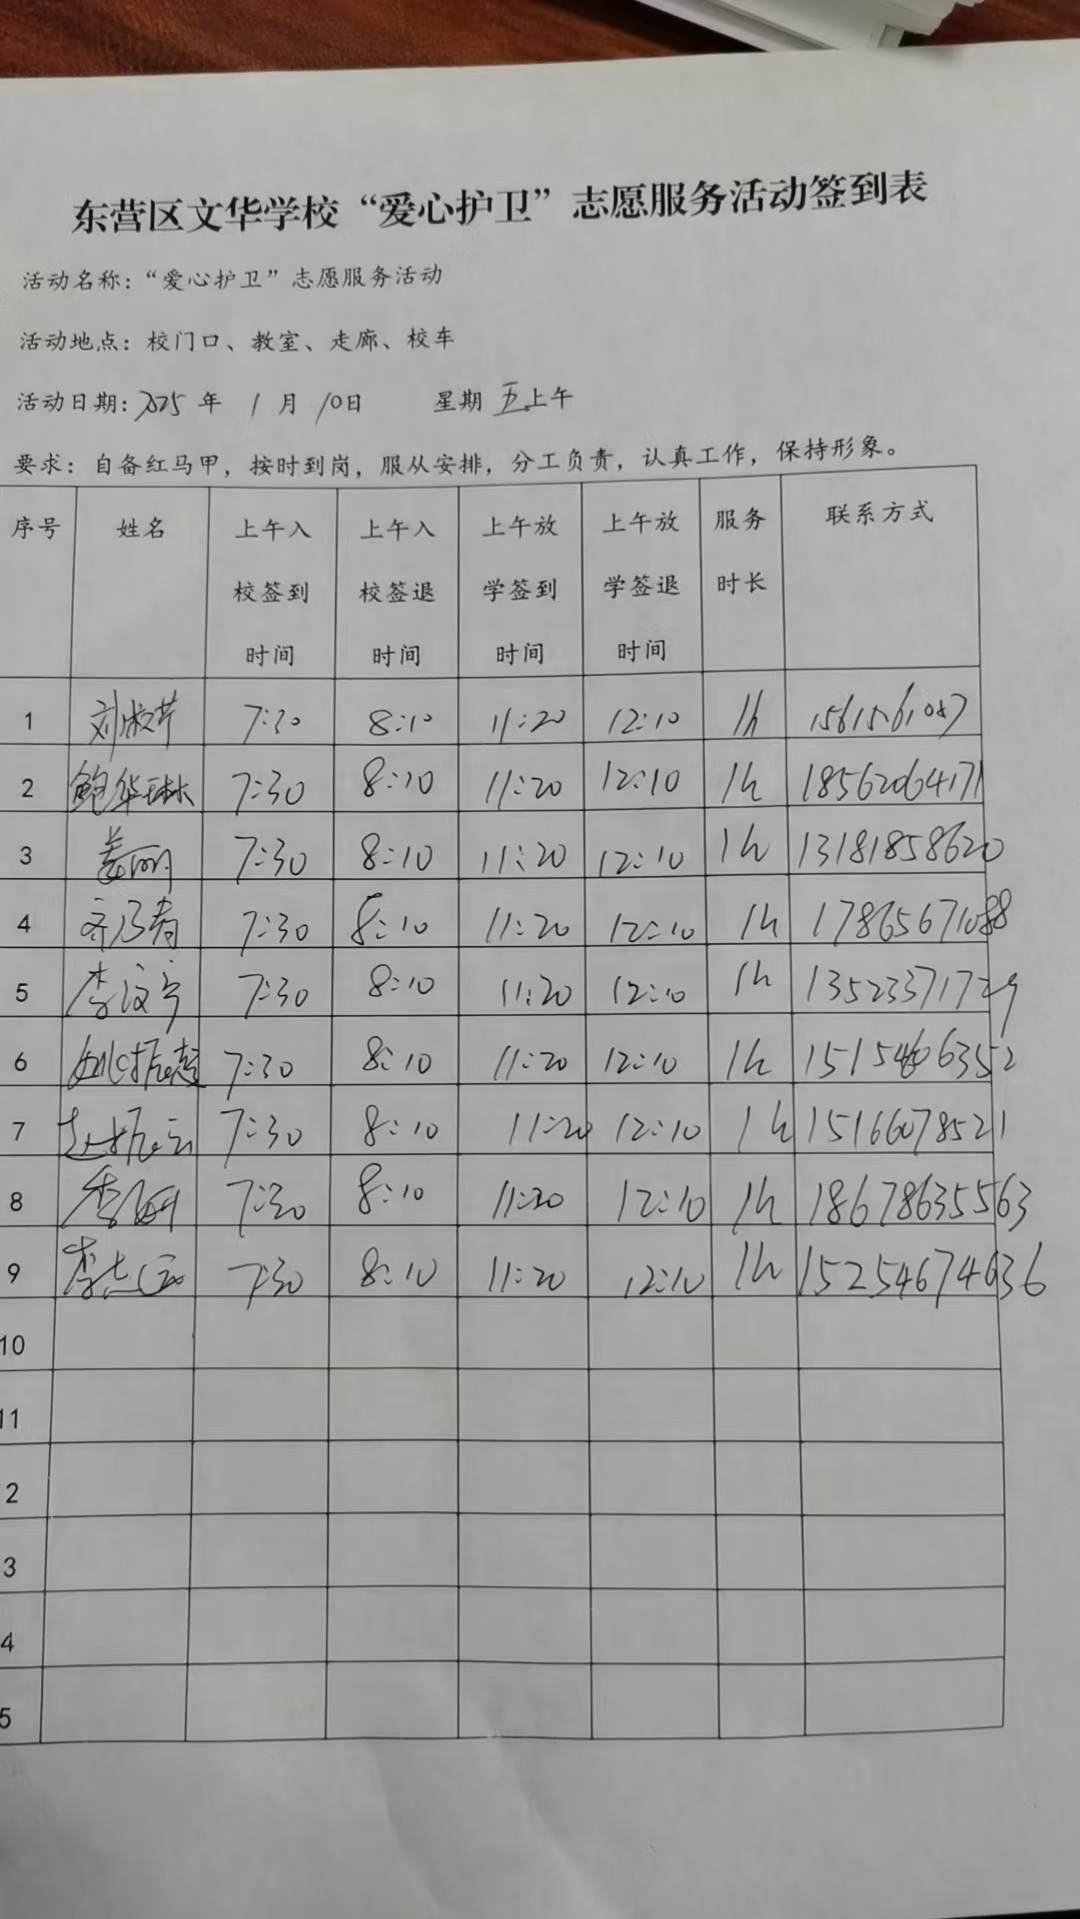 东营区文华学校“爱心护卫”志愿服务活动签到表
活动名称：“爱心护卫”志愿服务活动
活动地点：校门口、教室、走廊、校车
活动日期：2025年 1月 10日 星期五上午
要求：自备红马甲，按时到岗，服从安排，分工负责，认真工作，保持形象。
序号 姓名 上午入校签到时间 上午入校签退时间 上午放学签到时间 上午放学签退时间 服务时长 联系方式
1 刘淑芹 7:30 8:10 11:20 12:10 1h 1561561087
2 鲍华琳 7:30 8:10 11:20 12:10 1h 18562064171
3 姜丽 7:30 8:10 11:20 12:10 1h 13181858620
4 齐乃春 7:30 8:10 11:20 12:10 1h 17865671088
5 李汶宁 7:30 8:10 11:20 12:10 1h 13523371729
6 7:30 8:10 11:20 12:10 1h 15154606352
7 赵振云 7:30 8:10 11:20 12:10 1h 15166078521
8 7:30 8:10 11:20 12:10 1h 18678635563
9 7:30 8:10 11:20 12:10 1h 15254674636
10
11
2
3
4
5